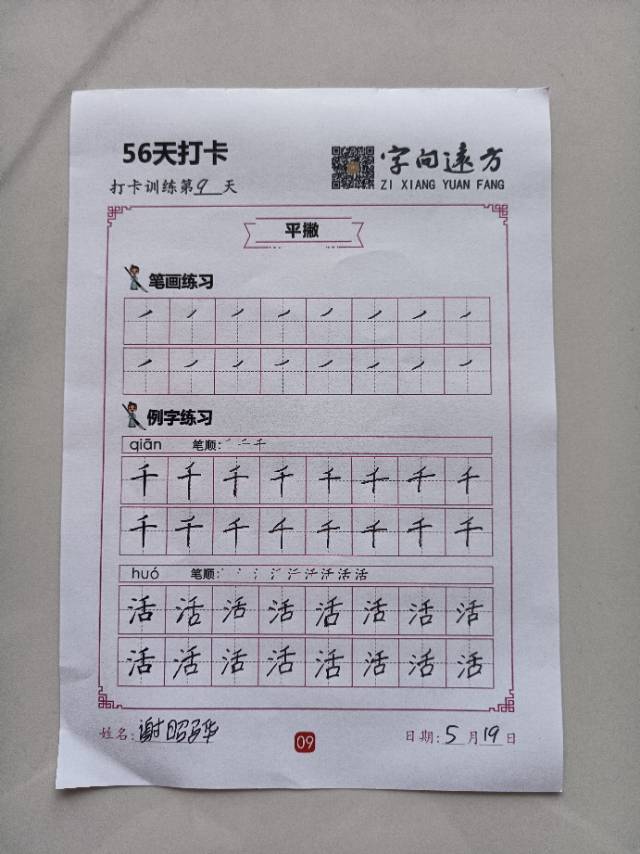 56天打卡
打卡训练第9天
字向远方
ZI XIANG YUAN FANG
平撇
笔画练习
例字练习
qiān 笔顺:
千 千 千 千 千 千 千 千
千 千 千 千 千 千 千 千
huó 笔顺: 活
活 活 活 活 活 活 活 活
活 活 活 活 活 活 活 活
姓名:谢昭
09
日期:5月19日